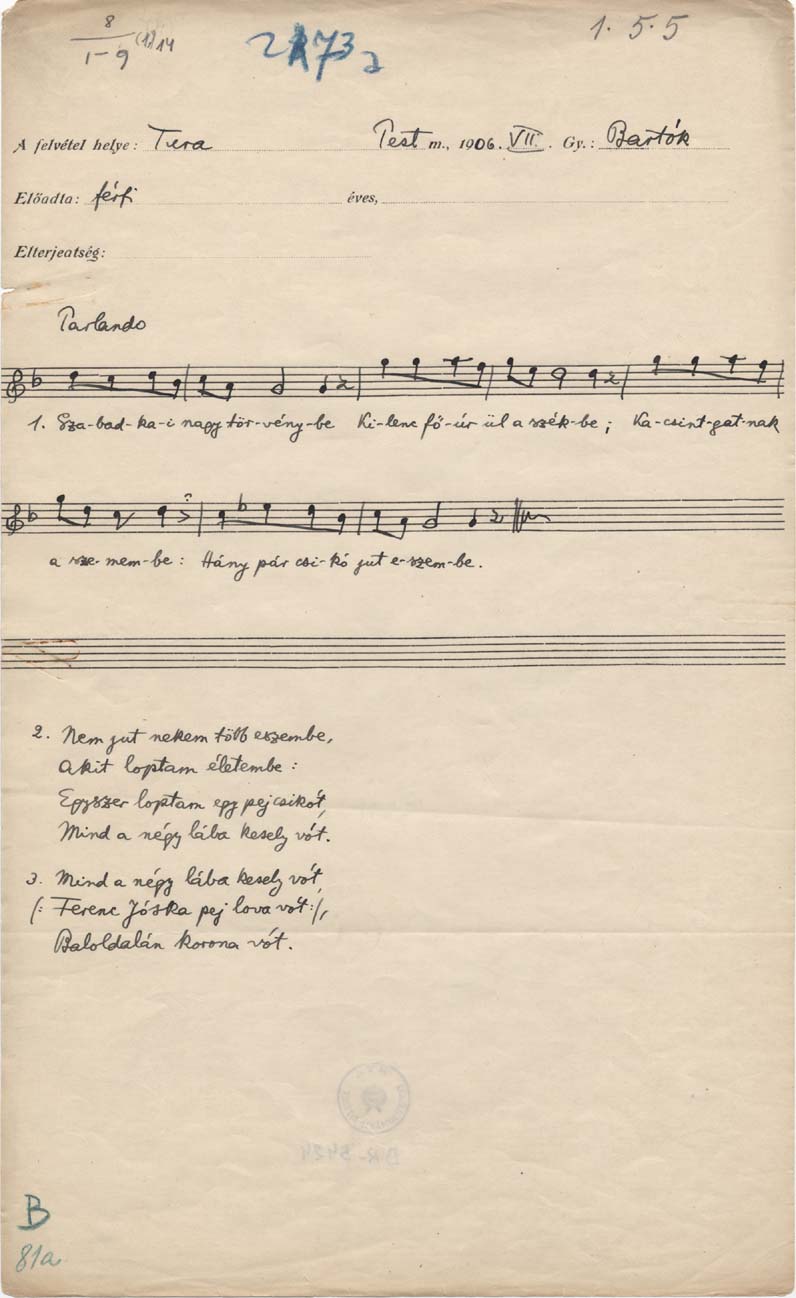 8
1-9 (1)14
1. 5. 5
A felvétel helye: Tura Pest m., 1906. VII. Gy.: Bartók
Előadta: férfi éves,
Elterjeatség:
Parlando
1. Sza-bad-ka-i nagy tör-vény-be Ki-lenc fő-úr ül a szék-be; Ka-csint-gat-nak
a sze-mem-be: Hány pár csi-kó jut e-szem-be.
2. Nem jut nekem több eszembe,
Akit loptam életembe:
Egyszer loptam egy pejcsikót,
Mind a négy lába kesely vót.
3. Mind a négy lába kesely vót,
(: Ferenc Jóska pej lova vót :),
Baloldalán korona vót.
B
81a